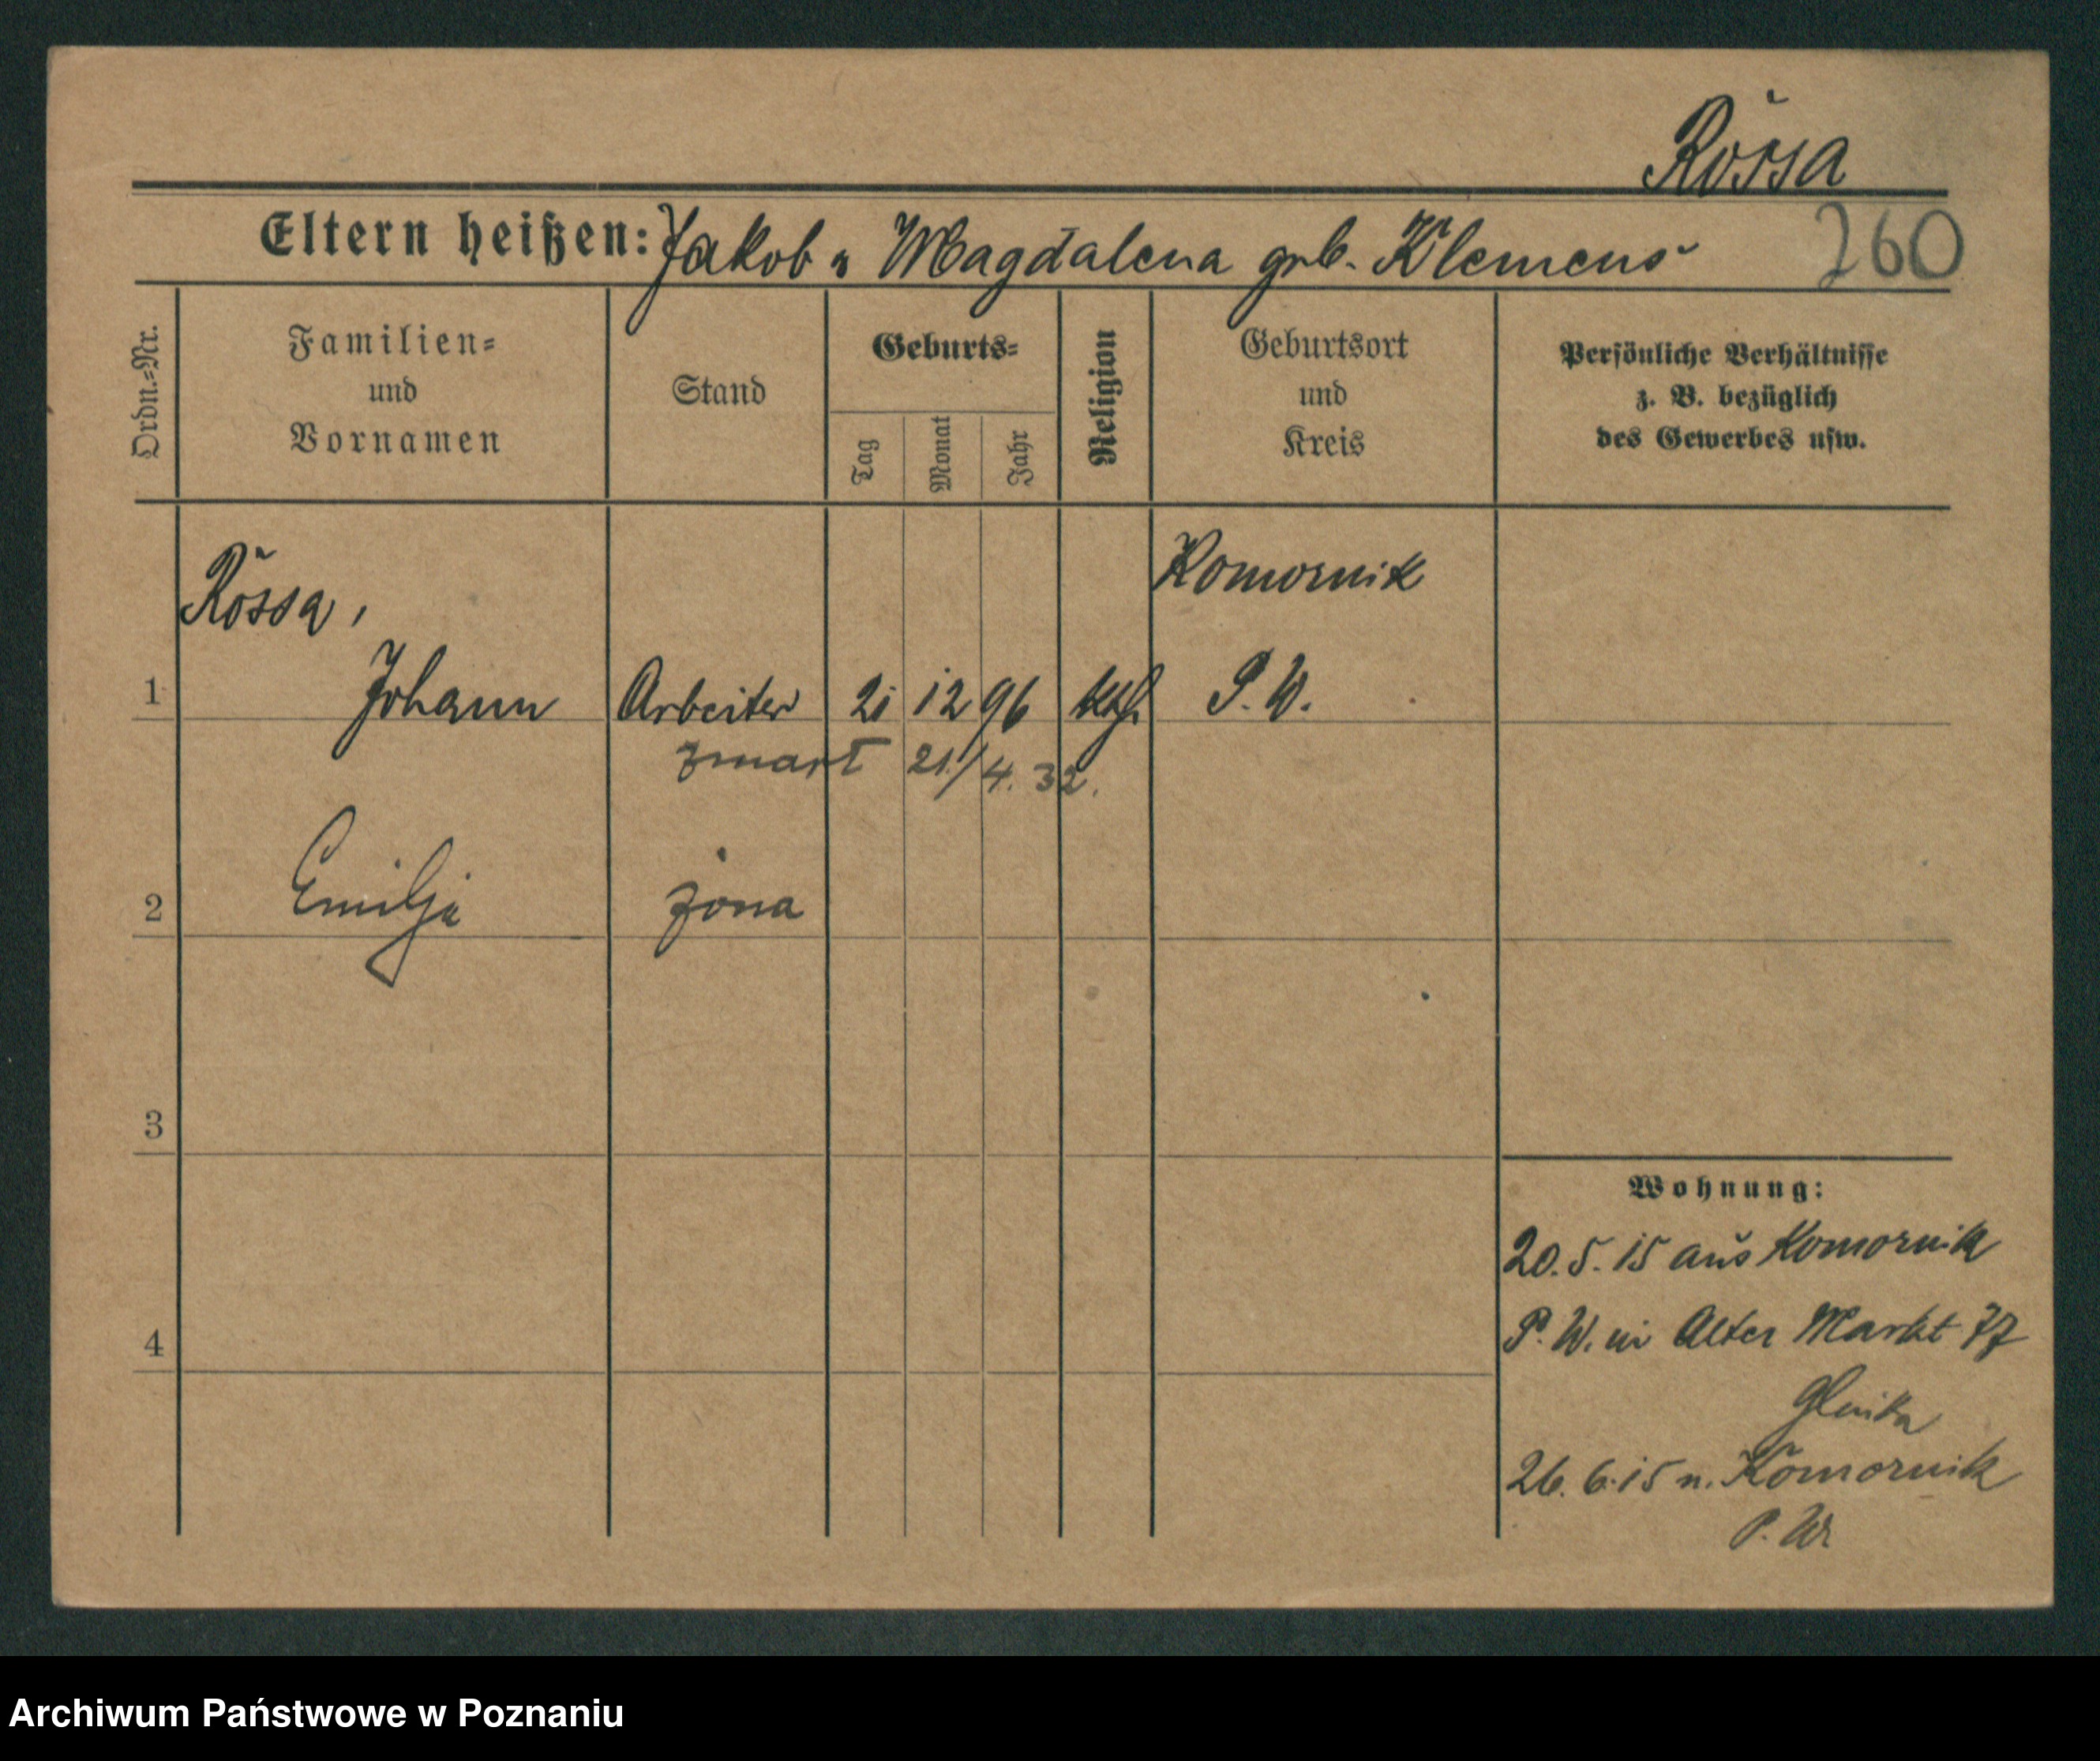 Rossa
Eltern heißen: Jakob u Magdalena geb. Klemens
260
Ordn.=Nr.
Familien=
und
Vornamen
Stand
Geburts=
Tag
Monat
Jahr
Religion
Geburtsort
und
Kreis
Persönliche Verhältnisse
z. B. bezüglich
des Gewerbes usw.
Rossa,
Komornik
1 Johann Arbeiter 21 12 96 kath. P. W.
zmarł 21/4. 32.
2 Emilja żona
3
Wohnung:
20. 5. 15 aus Komornik
4
P. W. in Alter Markt 77
26. 6. 15 n. Komornik
P. W.
Archiwum Państwowe w Poznaniu